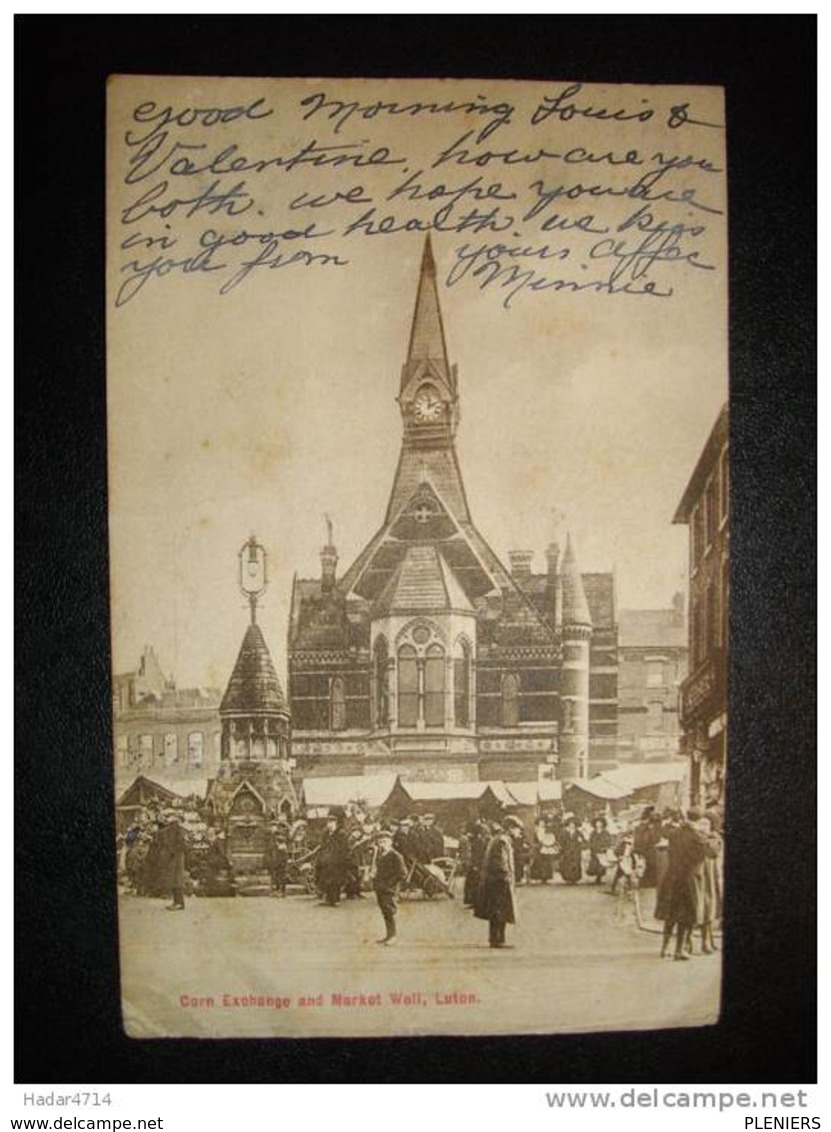 Good Morning Louis &
Valentine. how are you
both. we hope you are
in good health we kiss
you from yours affec
Minnie
Corn Exchange and Market Well, Luton.
Hadar4714
www.delcampe.net
www.delcampe.net
PLENIERS